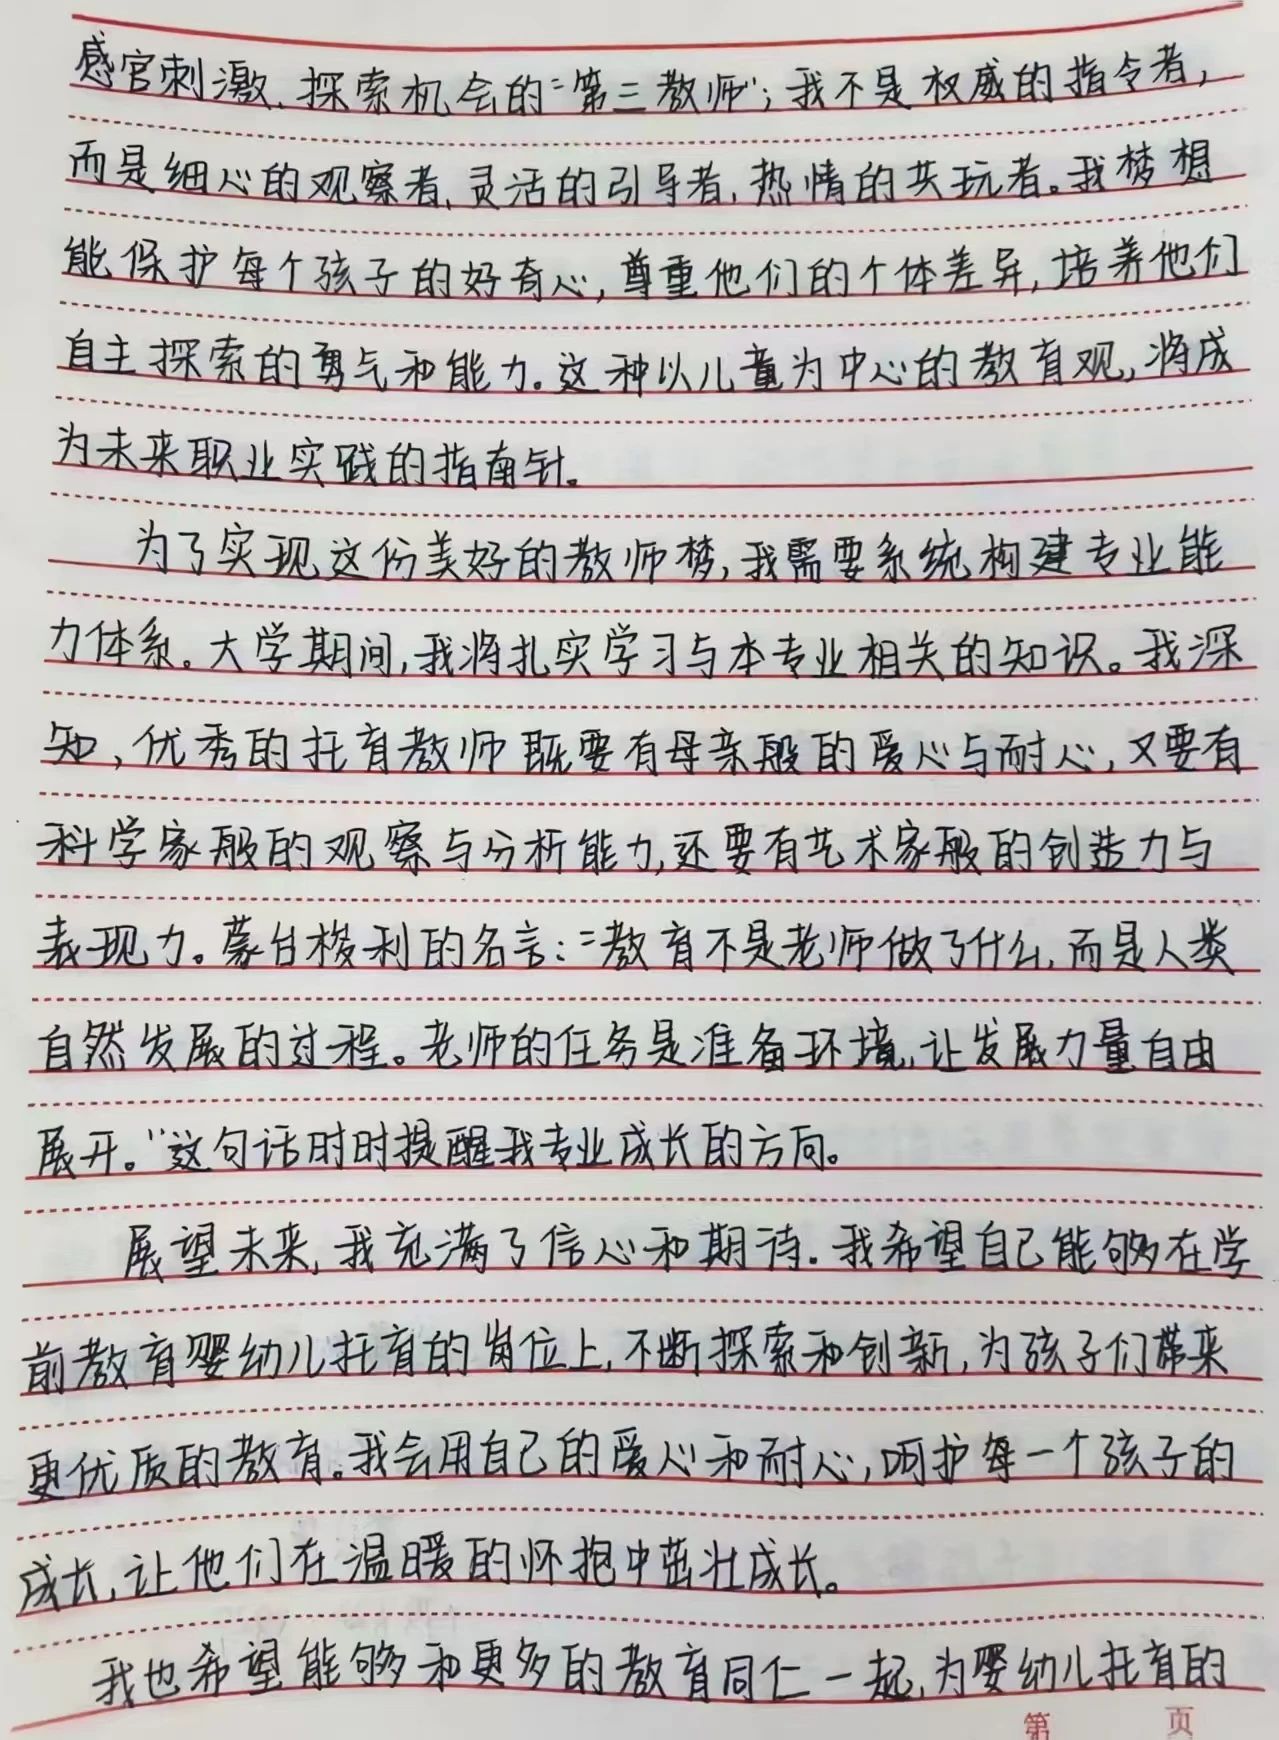 感官刺激、探索机会的“第三教师”；我不是权威的指令者，
而是细心的观察者、灵活的引导者，热情的共玩者。我梦想
能保护每个孩子的好奇心，尊重他们的个体差异，培养他们
自主探索的勇气和能力。这种以儿童为中心的教育观，将成
为未来职业实践的指南针。
为了实现这份美好的教师梦，我需要系统构建专业能
力体系。大学期间，我将扎实学习与本专业相关的知识。我深
知，优秀的托育教师既要有母亲般的爱心与耐心，又要有
科学家般的观察与分析能力，还要有艺术家般的创造力与
表现力。蒙台梭利的名言：“教育不是老师做了什么，而是人类
自然发展的过程。老师的任务是准备环境，让发展力量自由
展开。”这句话时时提醒我专业成长的方向。
展望未来，我充满了信心和期待。我希望自己能够在学
前教育婴幼儿托育的岗位上，不断探索和创新，为孩子们带来
更优质的教育。我会用自己的爱心和耐心，呵护每一个孩子的
成长，让他们在温暖的怀抱中茁壮成长。
我也希望能够和更多的教育同仁一起，为婴幼儿托育的
第 页